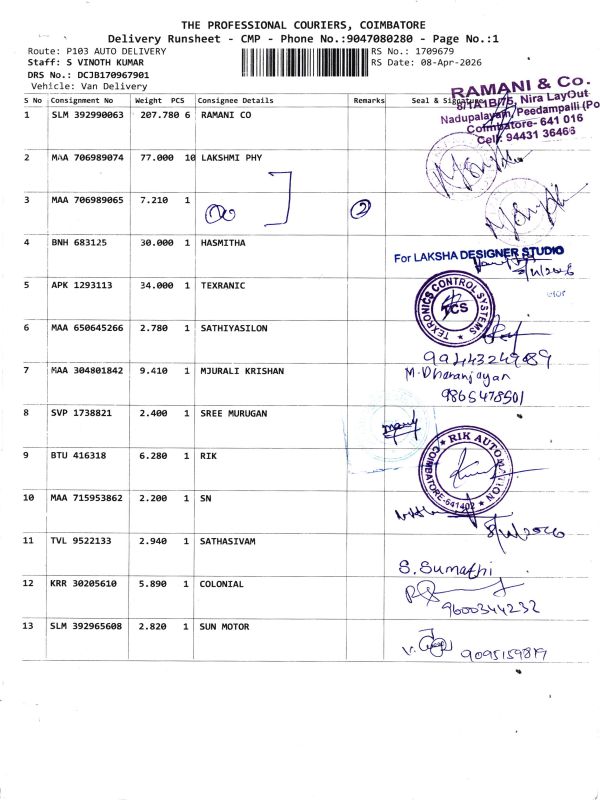 THE PROFESSIONAL COURIERS, COIMBATORE
Delivery Runsheet - CMP - Phone No.:9047080280 - Page No.:1
Route: P103 AUTO DELIVERY RS No.: 1709679
Staff: S VINOTH KUMAR RS Date: 08-Apr-2026
DRS No.: DCJB170967901
Vehicle: Van Delivery
S No Consignment No Weight PCS Consignee Details Remarks Seal & Signature
RAMANI & Co.
8/1A1B/75, Nira LayOut
Nadupalayam, Peedampalli (Po
Coimbatore- 641 016
Cell: 94431 36466
1 SLM 392990063 207.780 6 RAMANI CO
2 MAA 706989074 77.000 10 LAKSHMI PHY
3 MAA 706989065 7.210 1 2
4 BNH 683125 30.000 1 HASMITHA
For LAKSHA DESIGNER STUDIO
5 APK 1293113 34.000 1 TEXRANIC
TEXRONICS CONTROL SYSTEMS
TCS
6 MAA 650645266 2.780 1 SATHIYASILON
9944324989
7 MAA 304801842 9.410 1 MJURALI KRISHAN
M. Dharanjayan
9865478501
8 SVP 1738821 2.400 1 SREE MURUGAN
9 BTU 416318 6.280 1 RIK
RIK AUTOMATION
COIMBATORE-641402
10 MAA 715953862 2.200 1 SN
11 TVL 9522133 2.940 1 SATHASIVAM
S. Sumathi
12 KRR 30205610 5.890 1 COLONIAL
9600344232
13 SLM 392965608 2.820 1 SUN MOTOR
9095159819